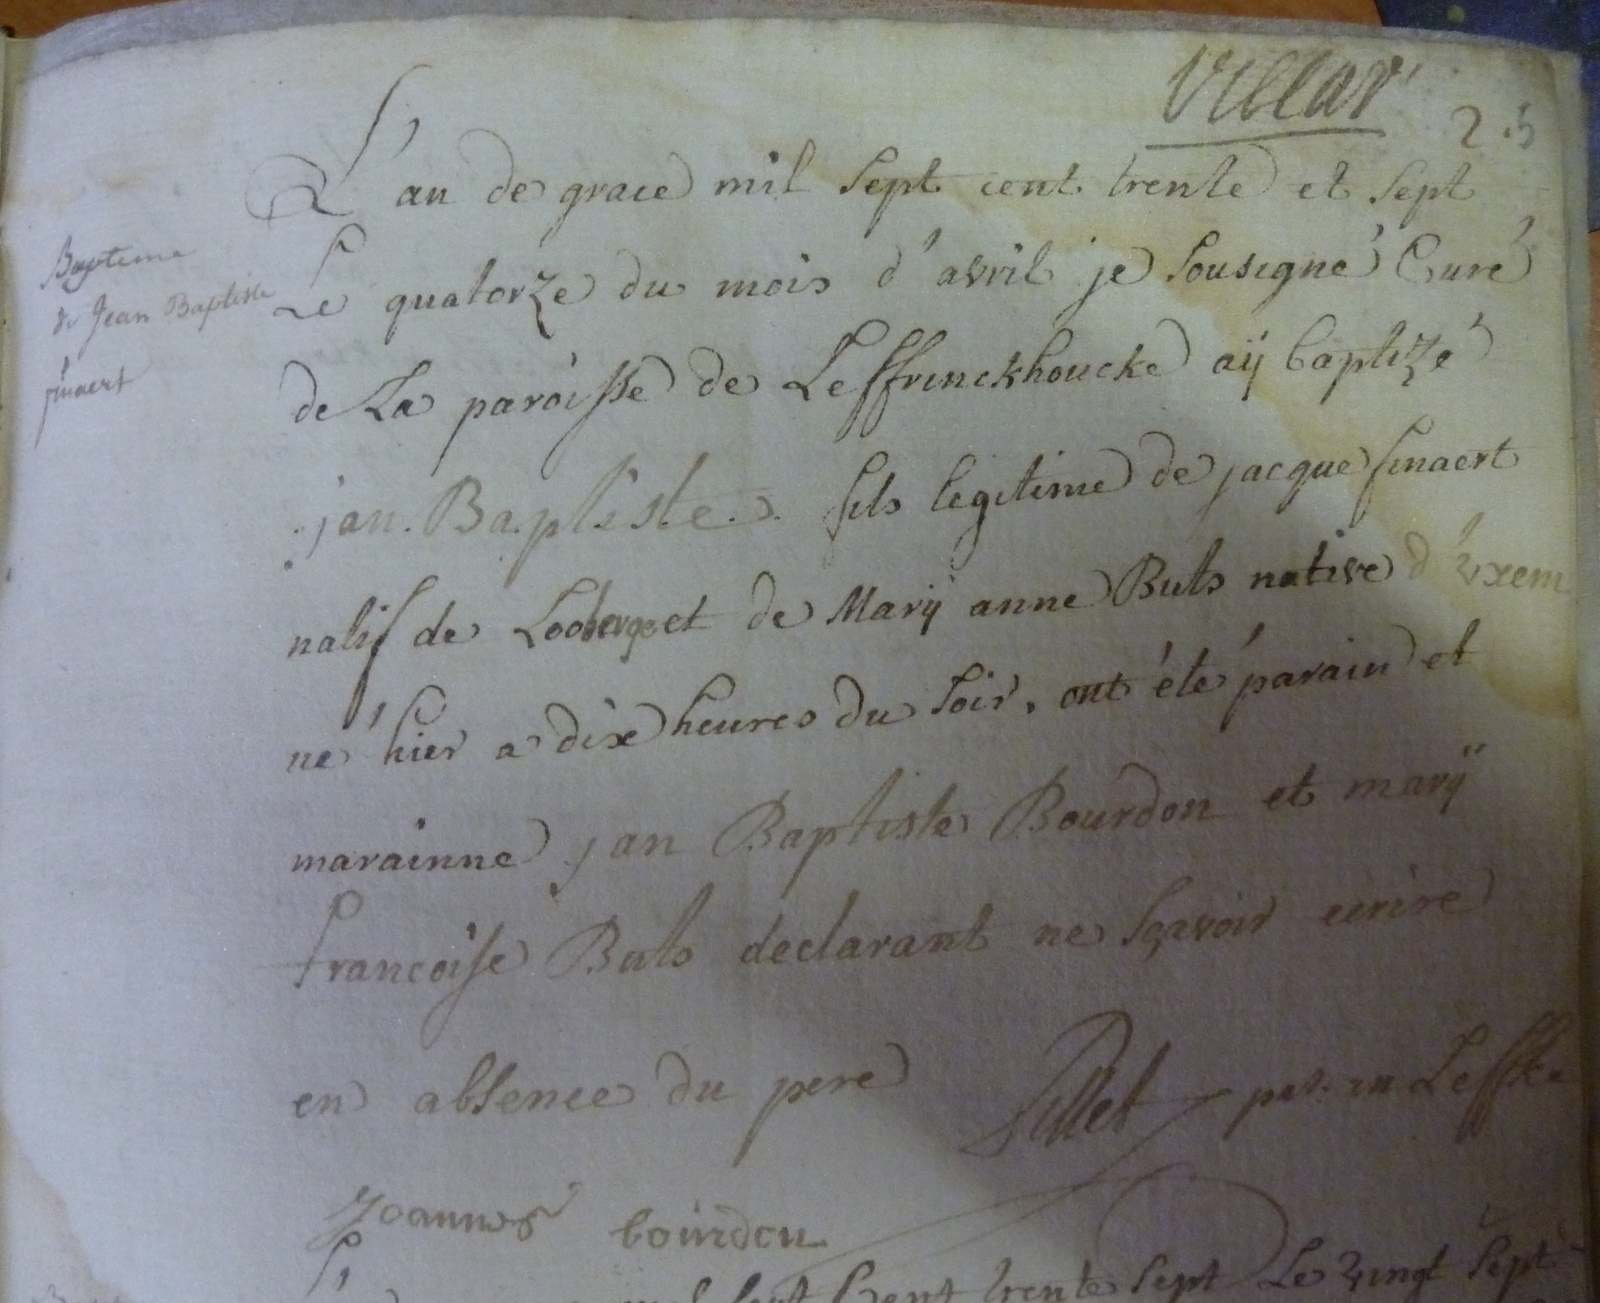 Villar
2.5
L'an de grace mil sept cent trente et sept
Bapteme
de Jean Baptiste
finaert
Le quatorze du mois d'avril je sousigné Curé
de La paroisse de Leffrinckhoucke aÿ baptizé
jan. Baptiste. fils legitime de jacque finaert
natif de Looberge et de Marÿ anne Buts native d'Uxem
né hier a dix heures du soir, ont été parain et
marainne jan Baptiste Bourdon et marÿ
francoise Buts declarant ne sçavoir ecrire
en absence du pere
Joannes bourdon
cent trente sept Le vingt sept